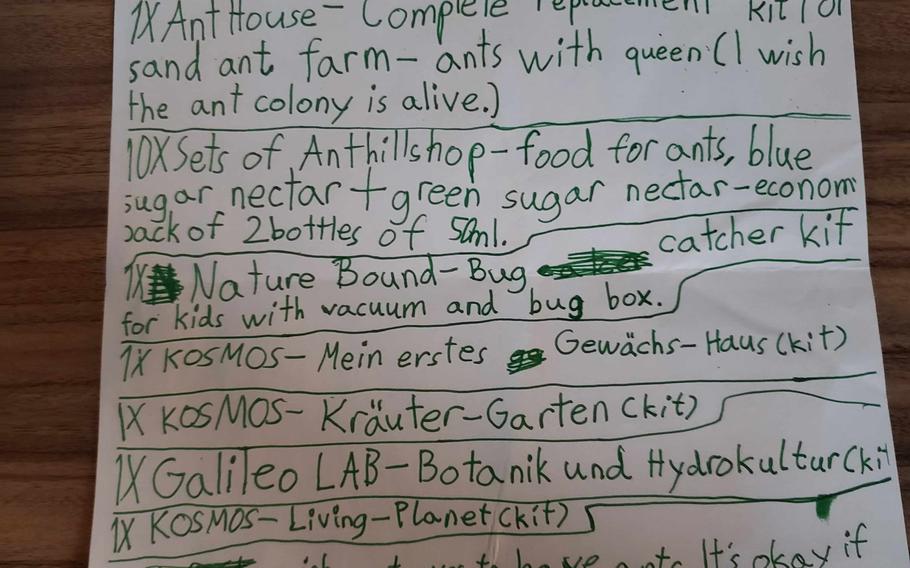 1X Ant House- Complete replacement kit for
sand ant farm- ants with queen (I wish
the ant colony is alive.)
10X Sets of Anthillshop-food for ants, blue
sugar nectar + green sugar nectar-econom
pack of 2 bottles of 50ml.
1X Nature Bound-Bug catcher kit
for kids with vacuum and bug box.
1X KOSMOS- Mein erstes Gewächs-Haus (kit)
1X KOSMOS- Kräuter-Garten (kit)
1X Galileo LAB-Botanik und Hydrokultur (kit
1X KOSMOS-Living-Planet (kit)
have ants It's okay if